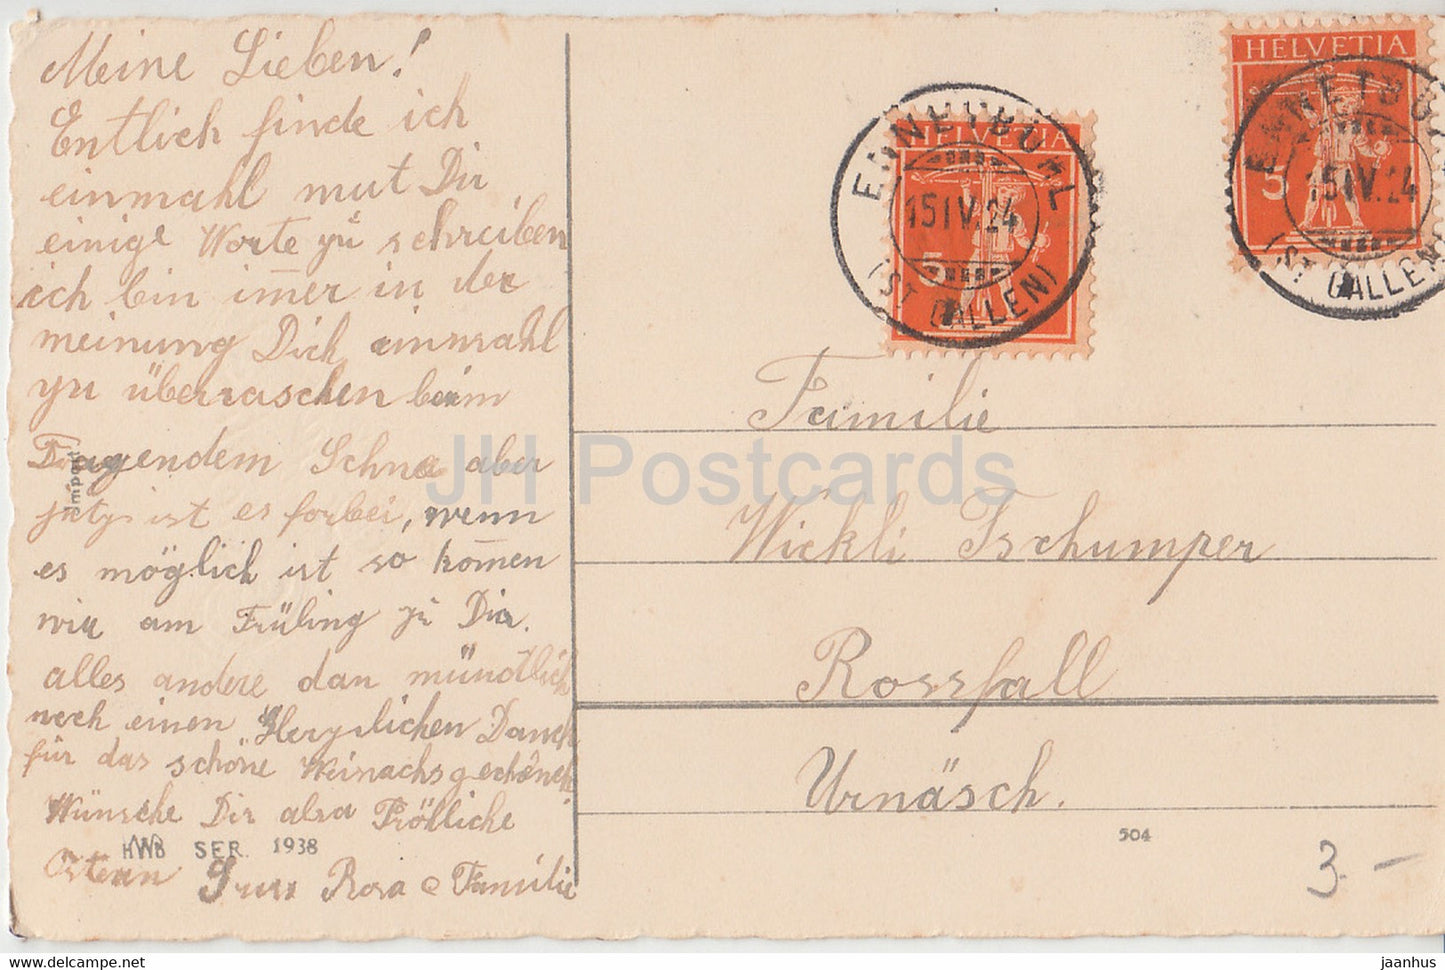 Meine Lieben!
Entlich finde ich
einmahl mut Dir
einige Worte zu schreiben
ich bin im̅er in der
meinung Dich einmahl
zu überraschen beim
Tragendem Schne aber
jetz ist es forbei, wenn
es möglich ist so kom̅en
wir am Früling zu Dir.
alles andere dan mündtlich
noch einen Herzslichen Danck
für das schöne Weinachsgeschenck
Wünsche Dir alsa Fröhliche
Ostern Gruss Rosa & Familie
Import
HWB SER. 1938
HELVETIA
5
ENNETBÜHL
15 IV. 24
(ST. GALLEN)
HELVETIA
5
ENNETBÜ
15 IV. 24
(ST. GALLEN)
Familie
Wickli Tschumper
Rossfall
Urnäsch.
504
3.–
JH Postcards
www.delcampe.net
jaanhus